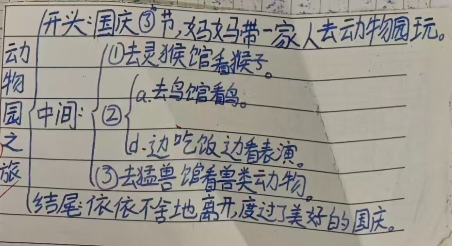 动物园之旅
开头:国庆③节,妈妈带一家人去动物园玩。
中间:
①去灵猴馆看猴子。
②
a.去鸟馆看鸟。
d.边吃饭边看表演。
③去猛兽馆看兽类动物。
结尾:依依不舍地离开,度过了美好的国庆。